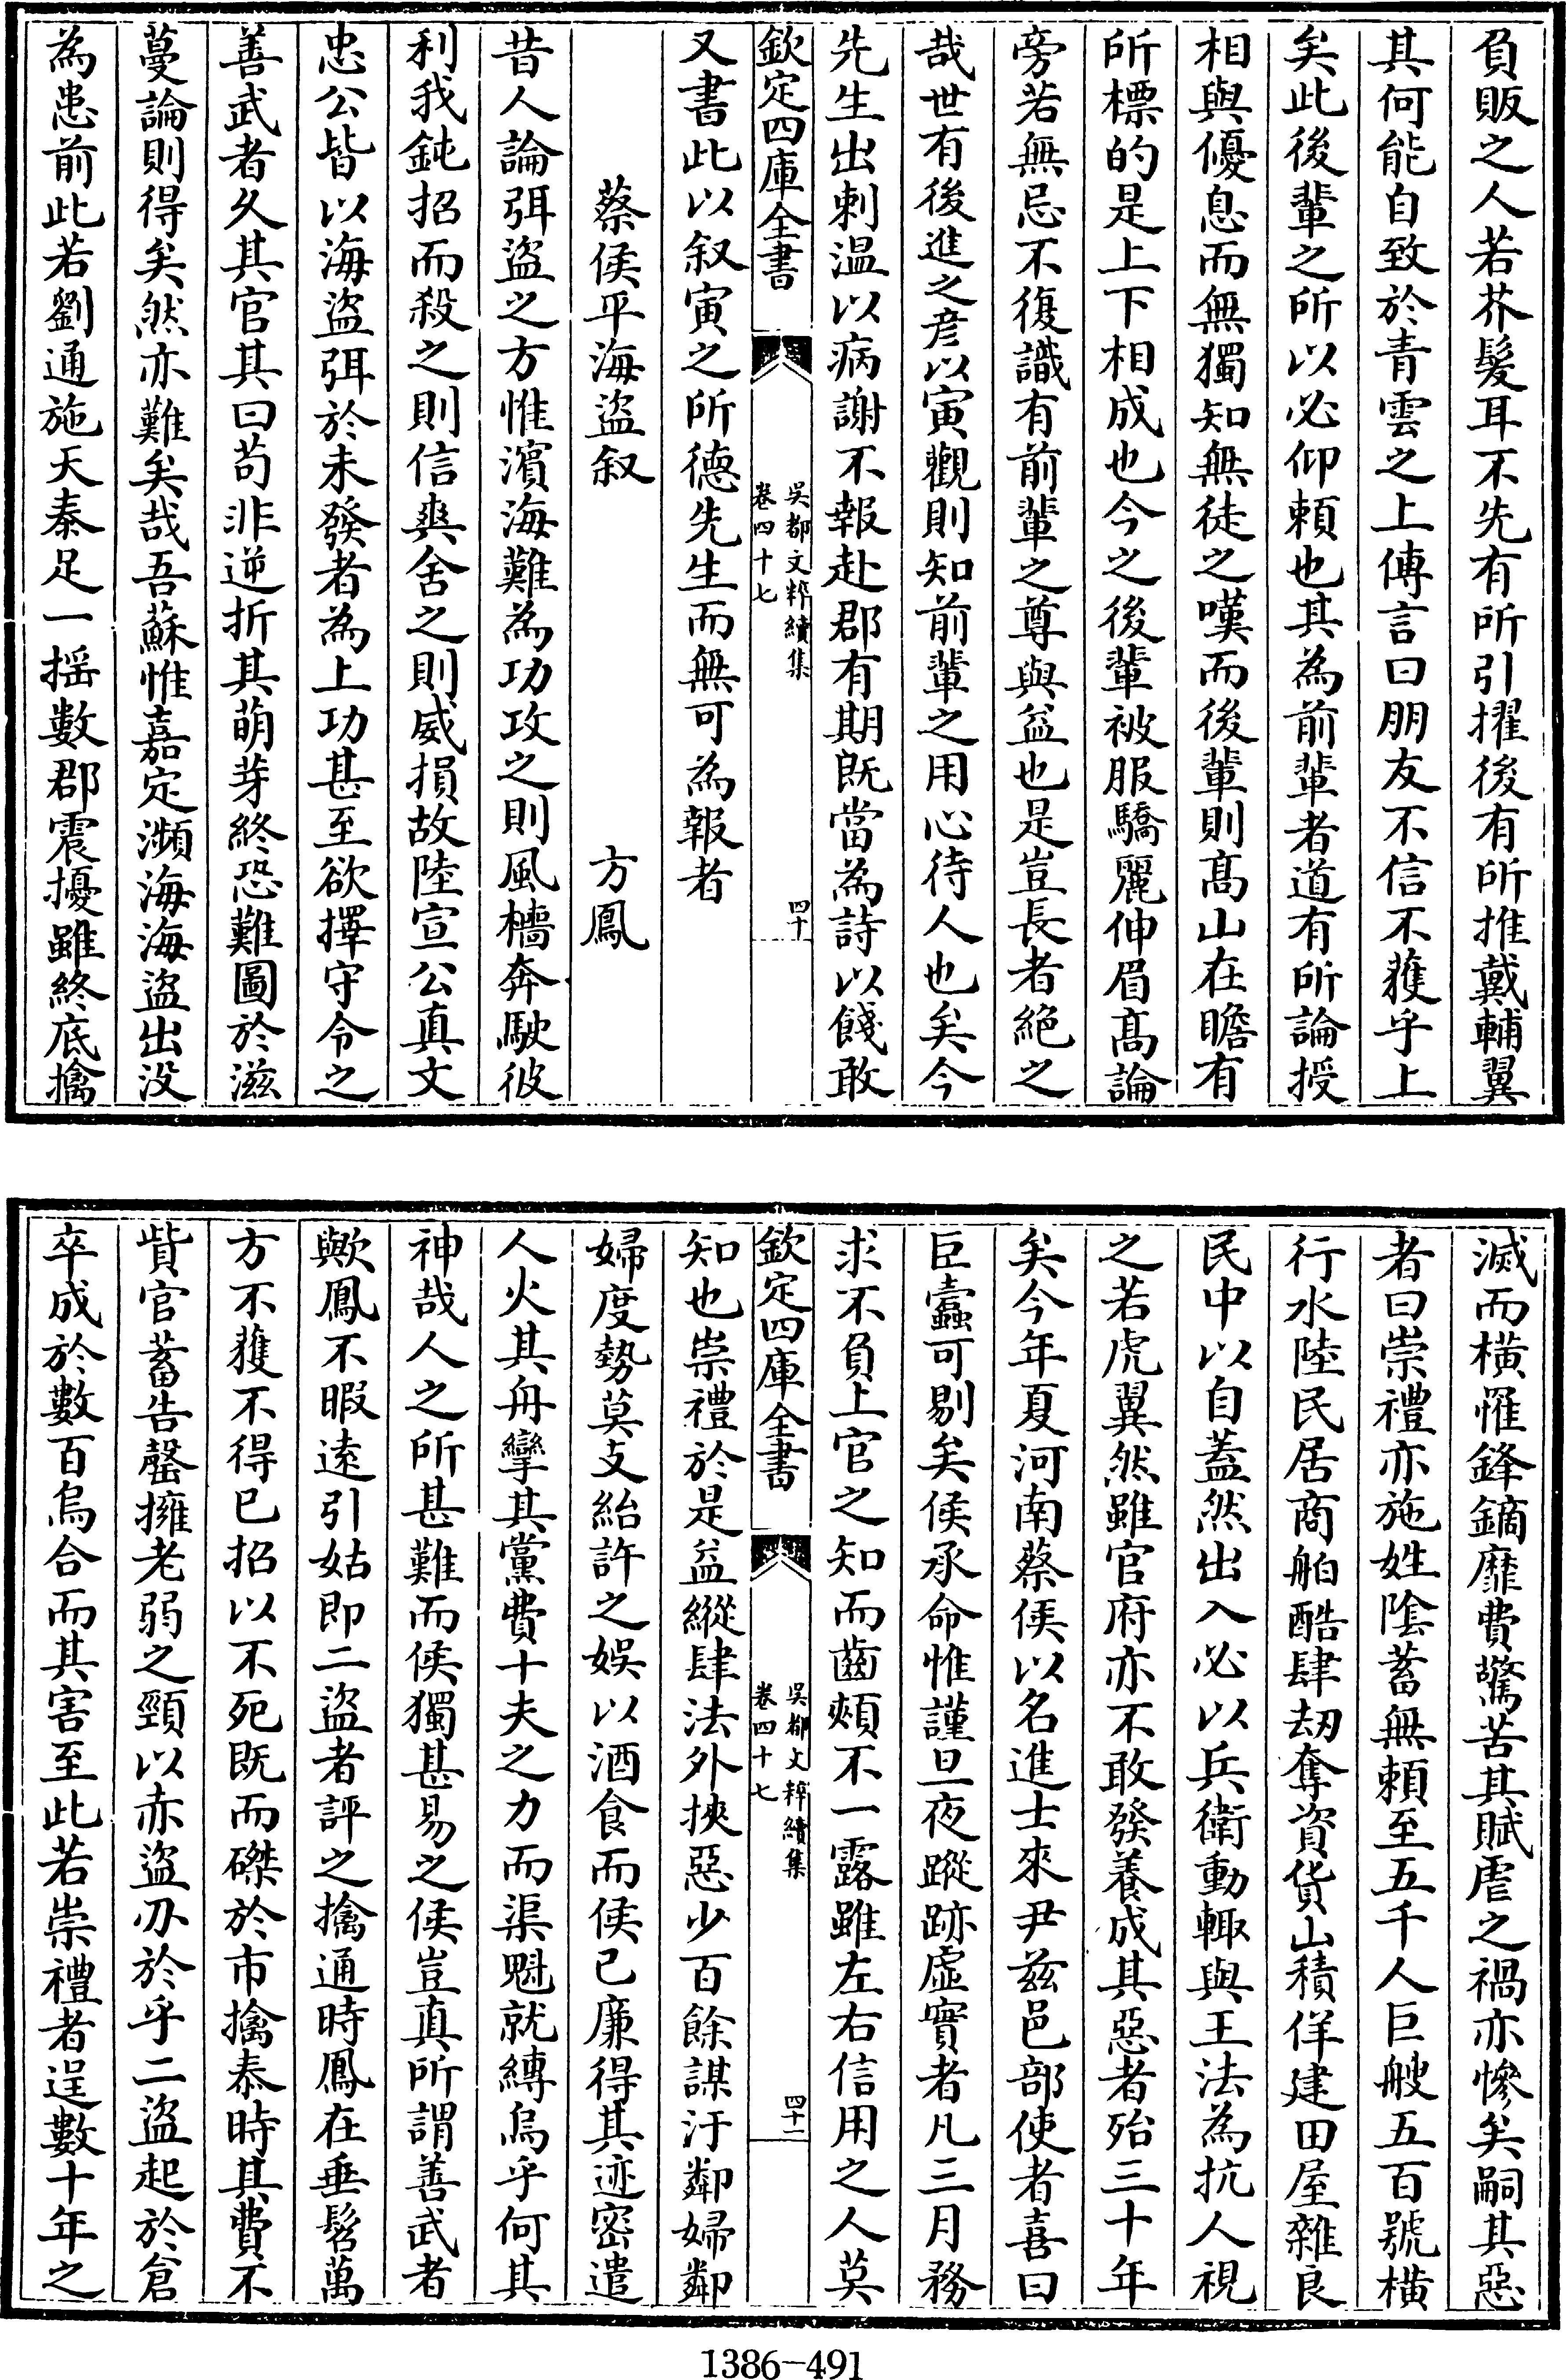 負販之人若芥髮耳不先有所引擢後有所推戴輔翼
其何能自致於青雲之上傳言曰朋友不信不獲乎上
矣此後輩之所以必仰賴也其為前輩者道有所論授
相與優息而無獨知無徒之嘆而後輩則高山在瞻有
所標的是上下相成也今之後輩被服驕麗伸眉高論
旁若無忌不復識有前輩之尊與益也是豈長者絶之
哉世有後進之彦以寅觀則知前輩之用心待人也矣今
先生出刺温以病謝不報赴郡有期既當為詩以餞敢
欽定四庫全書
吳都文粹續集
卷四十七
四十
又書此以叙寅之所德先生而無可為報者
蔡侯平海盜叙
方鳳
昔人論弭盜之方惟濱海難為功攻之則風檣奔駛彼
利我鈍招而殺之則信爽舍之則威損故陸宣公真文
忠公皆以海盜弭於未發者為上功甚至欲擇守令之
善武者久其官其曰苟非逆折其萌芽終恐難圖於滋
蔓論則得矣然亦難矣哉吾蘇惟嘉定瀕海海盜出没
為患前此若劉通施天泰足一摇數郡震擾雖終底擒
滅而横罹鋒鏑靡費驚苦其賦虐之禍亦慘矣嗣其惡
者曰崇禮亦施姓陰蓄無賴至五千人巨艘五百號横
行水陸民居商舶酷肆刼奪資貨山積佯建田屋雜良
民中以自蓋然出入必以兵衛動輙與王法為抗人視
之若虎翼然雖官府亦不敢發養成其惡者殆三十年
矣今年夏河南蔡侯以名進士來尹兹邑部使者喜曰
巨蠹可剔矣侯承命惟謹旦夜蹤跡虛實者凡三月務
求不負上官之知而齒頰不一露雖左右信用之人莫
欽定四庫全書
吳都文粹續集
卷四十七
四十一
知也崇禮於是益縱肆法外挾惡少百餘謀汙鄰婦鄰
婦度勢莫支紿許之娛以酒食而侯已廉得其迹密遣
人火其舟孿其黨費十夫之力而渠魁就縛烏乎何其
神哉人之所甚難而侯獨甚易之侯豈真所謂善武者
歟鳳不暇遠引姑即二盜者評之擒通時鳳在垂髫萬
方不獲不得已招以不死既而磔於市擒泰時其費不
貲官蓄告罄擁老弱之頸以赤盜刅於乎二盜起於倉
卒成於數百烏合而其害至此若崇禮者逞數十年之
1386-491